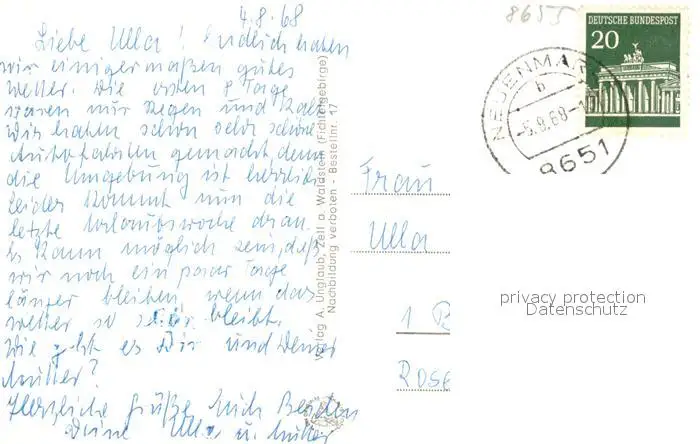 4.8.68
Liebe Ulla! Endlich haben
wir einigermaßen gutes
Wetter. Die ersten 8 Tage
waren nur Regen und kalt
Wir haben schon sehr schöne
Autofahrten gemacht, denn
die Umgebung ist herrlich
leider kommt nun die
letzte Urlaubswoche dran
Es kann möglich sein, daß
wir noch ein paar Tage
länger bleiben, wenn das
Wetter so bleibt.
Wie geht es Dir und Deiner
Mutter?
Herzliche Grüße Euch Beiden
Deine Ulla u. Mutter
Verlag A. Unglaub, Zell a. Waldstein (Fichtelgebirge)
Nachbildung verboten - Bestellnr. 17
8655
DEUTSCHE BUNDESPOST
20
NEUENMARK
b
-5.8.68-1
8651
Frau
Ulla
1 B
Rose
privacy protection
Datenschutz